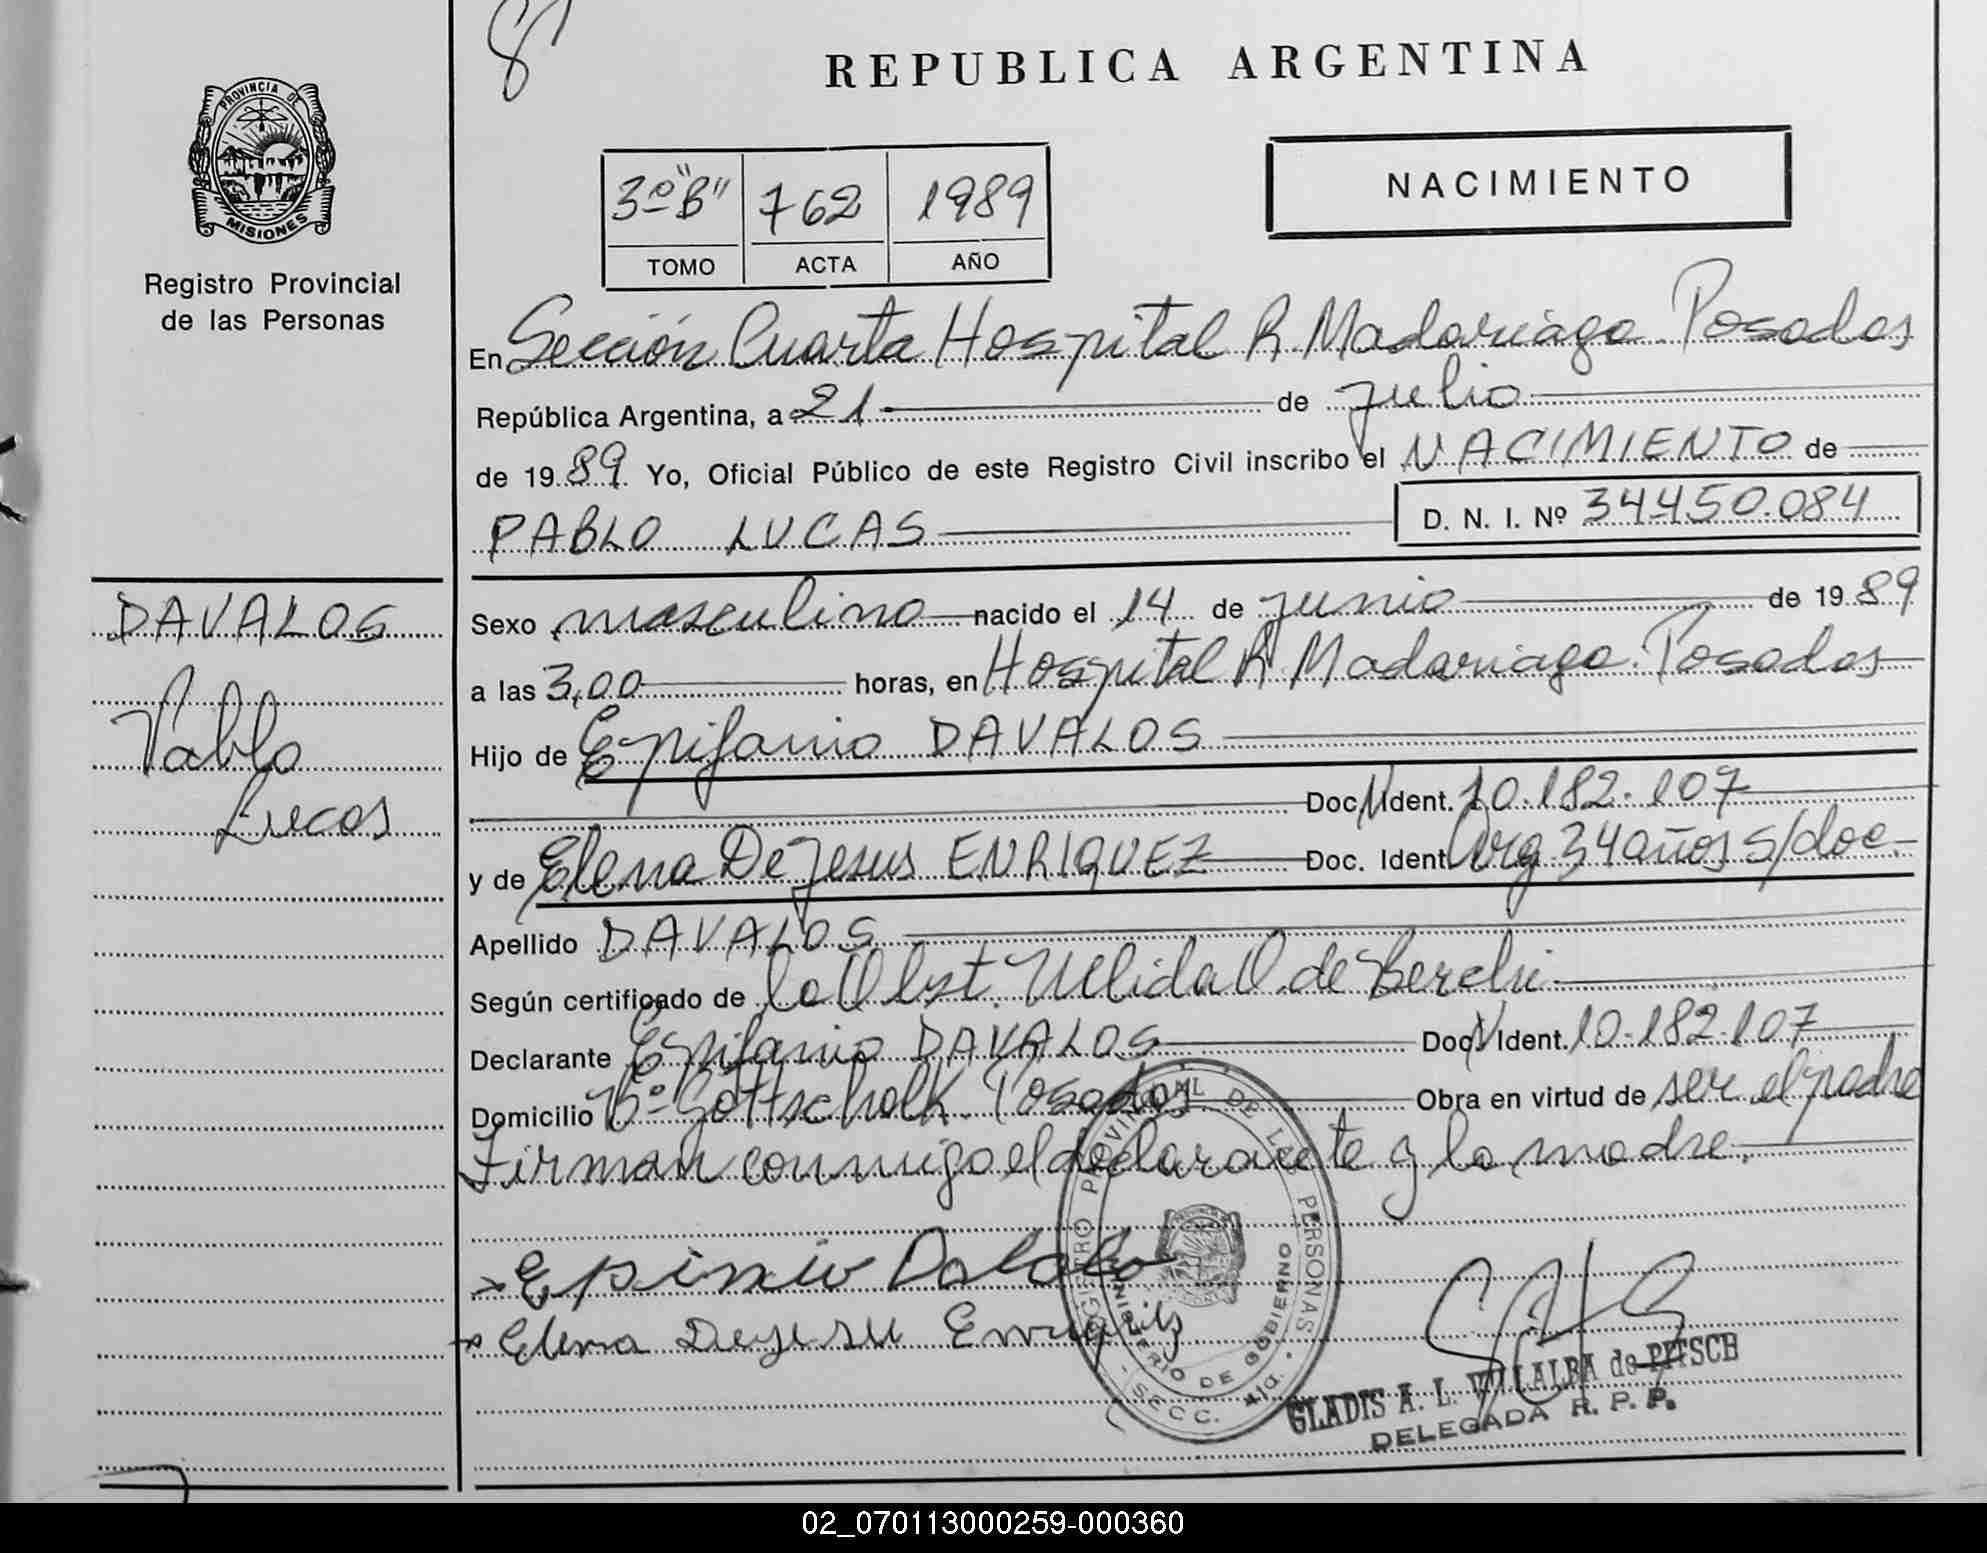 REPUBLICA ARGENTINA
PROVINCIA DE
MISIONES
Registro Provincial
de las Personas
3º "B" 762 1989
TOMO ACTA AÑO
NACIMIENTO
En Sección Cuarta Hospital R. Madariaga. Posadas
República Argentina, a 21 de julio
de 1989 Yo, Oficial Público de este Registro Civil inscribo el NACIMIENTO de
PABLO LUCAS D. N. I. Nº 34450.084
DAVALOS
Pablo
Lucas
Sexo masculino nacido el 14 de junio de 1989
a las 3,00 horas, en Hospital R. Madariaga. Posadas
Hijo de Epifanio DAVALOS
Doc. N Ident. 10.182.107
y de Elena De Jesus ENRIQUEZ Doc. Ident. Arg. 34 años s/doc.
Apellido DAVALOS
Según certificado de la Obst. Nelida O. de
Declarante Epifanio DAVALOS Doc. N Ident. 10.182.107
Domicilio Bº Gottschalk. Posadas Obra en virtud de ser el padre
Firman conmigo el declarante y la madre.
Elena Dejesu
REGISTRO PROVINCIAL DE LAS PERSONAS
MINISTERIO DE GOBIERNO
SECC. 4ta.
GLADIS A. L. VILLALBA de PITSCH
DELEGADA R. P. P.
02_070113000259-000360